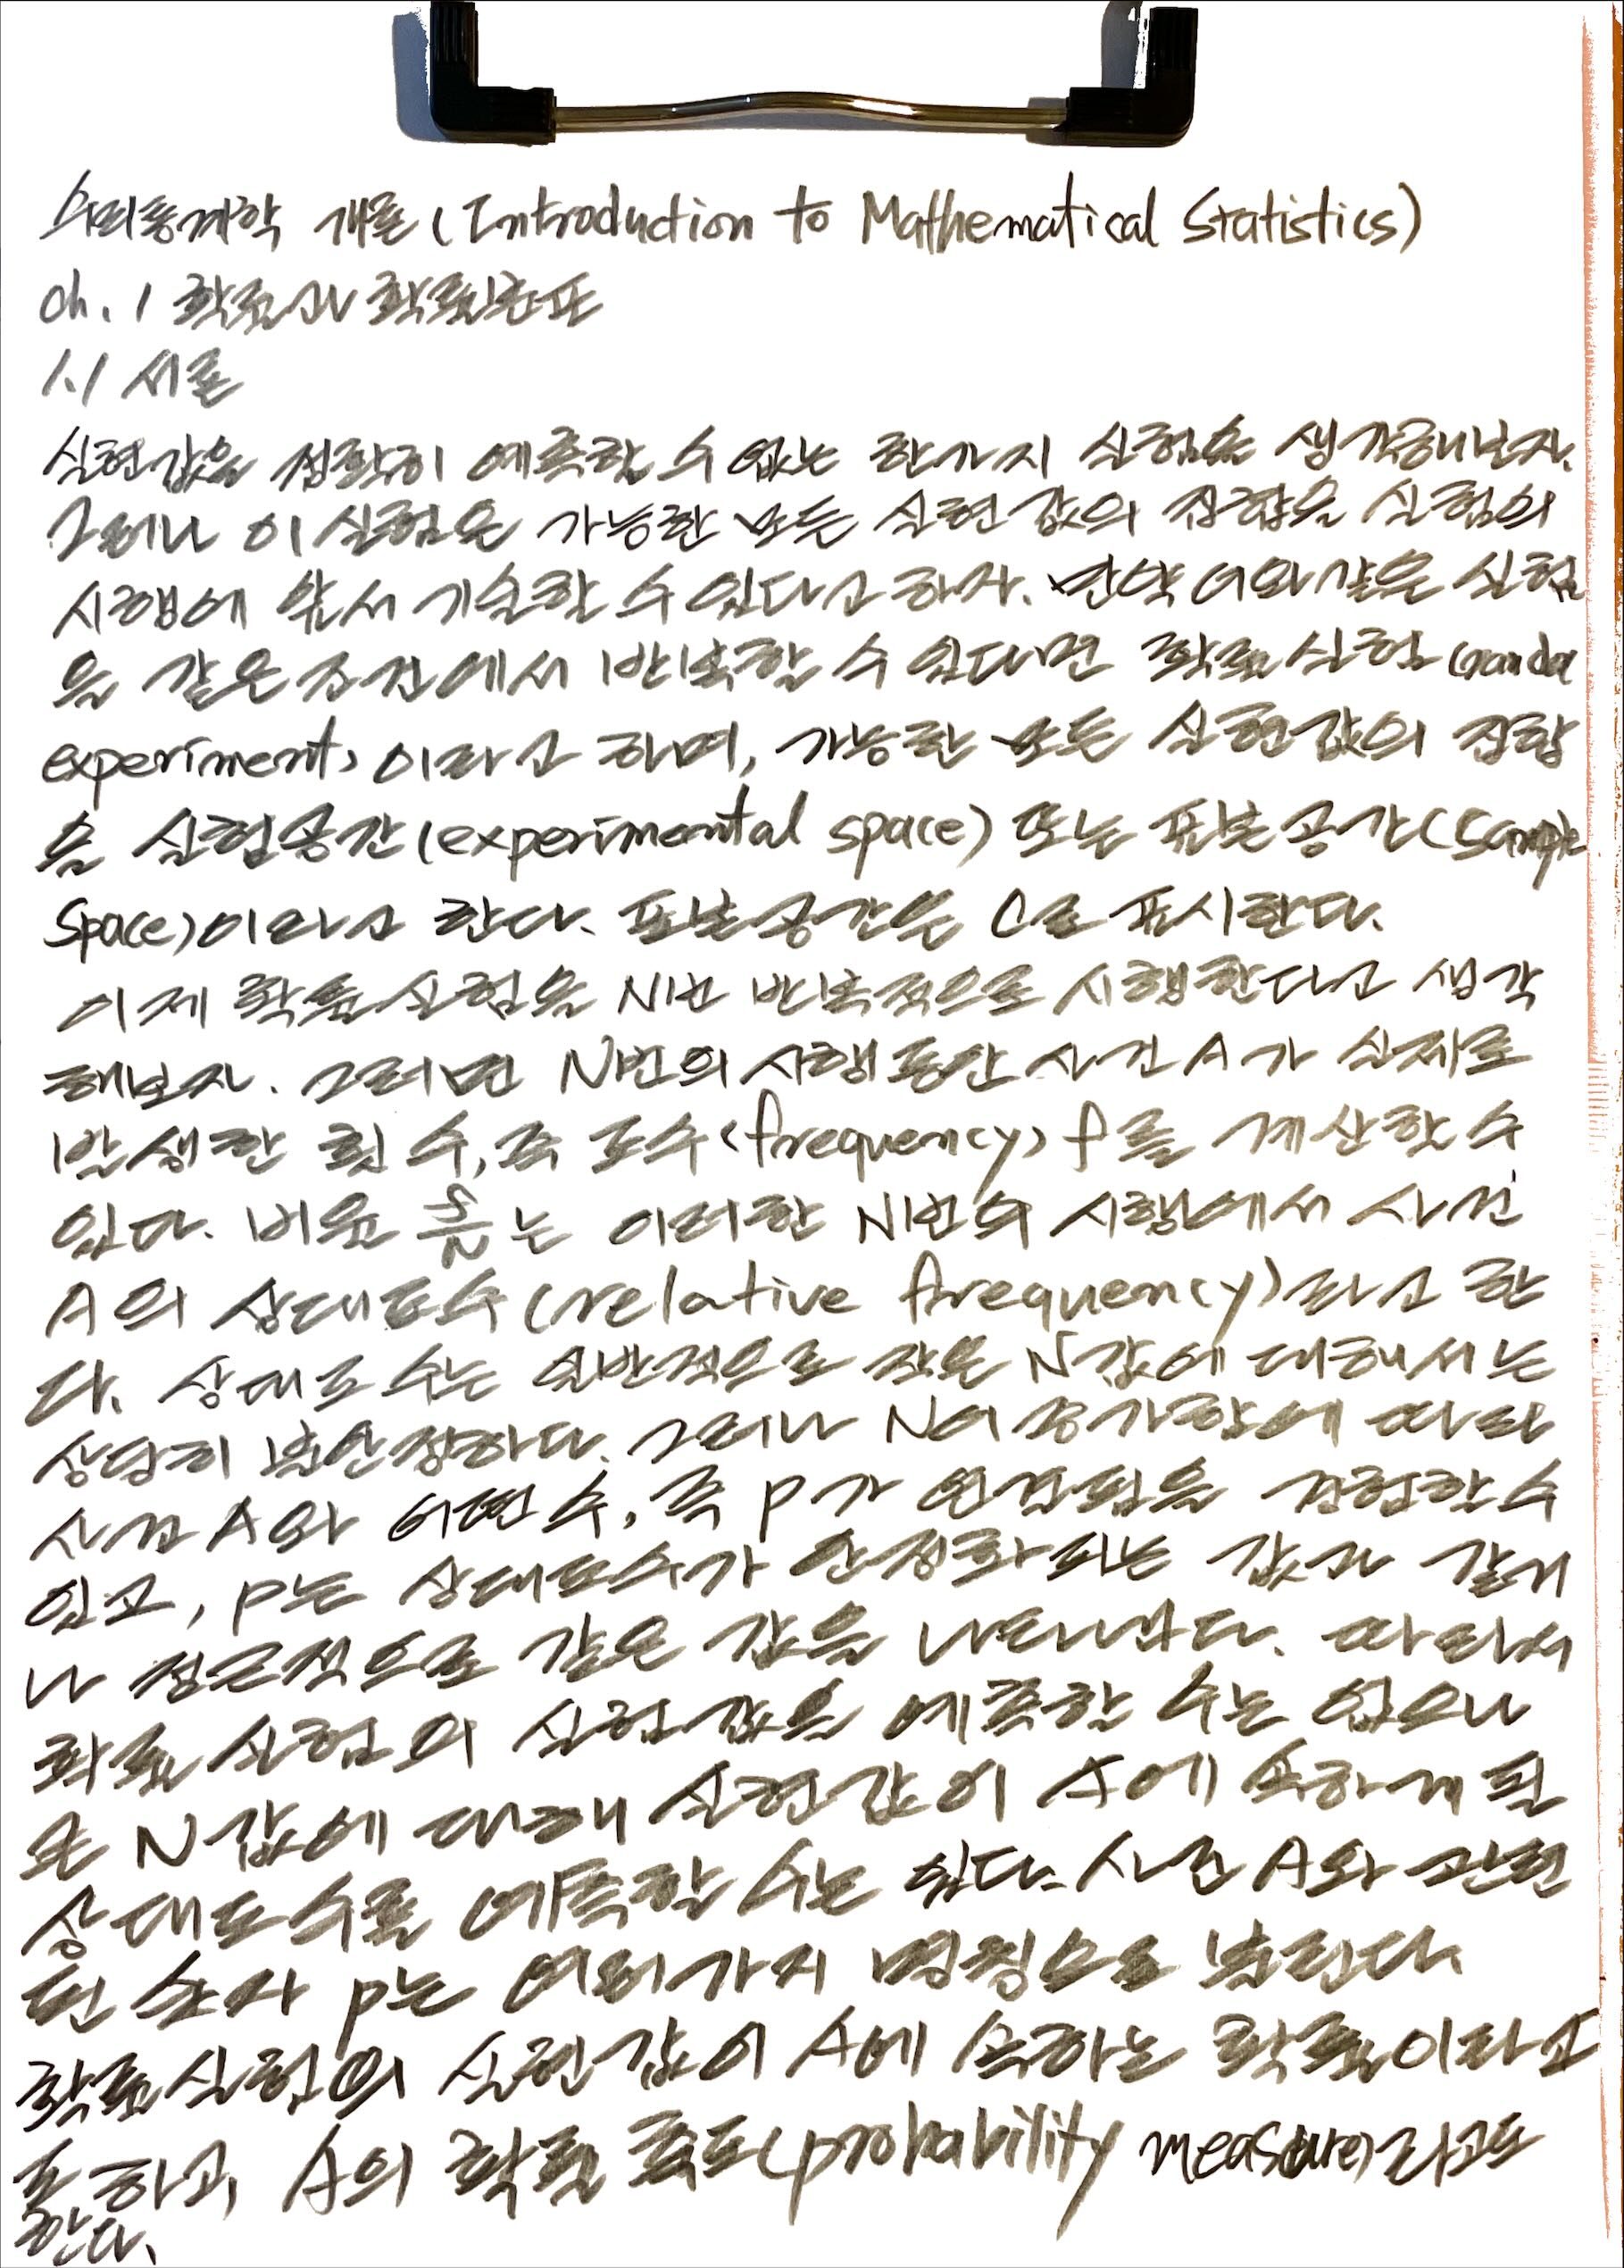 수리통계학 개론 (Introduction to Mathematical Statistics)
ch. 1 확률과 확률분포
1.1 서론
실현값을 정확히 예측할 수 없는 한가지 실험을 생각해보자.
그러나 이 실험은 가능한 모든 실현값의 집합을 실험의
시행에 앞서 기술할 수 있다고 하자. 만약 이와같은 실험
을 같은 조건에서 반복할 수 있다면 확률실험(
experiment)이라고 하며, 가능한 모든 실현값의 집합
을 실험공간(experimental space) 또는 표본공간(Sample
Space)이라고 한다. 표본공간은 C로 표시한다.
이제 확률실험을 N번 반복적으로 시행한다고 생각
해보자. 그러면 N번의 시행동안 사건 A가 실제로
발생한 횟수, 즉 도수(frequency) f를 계산할 수
있다. 비율 f/N는 이러한 N번의 시행에서 사건
A의 상대도수(relative frequency)라고 한
다. 상대도수는 일반적으로 작은 N값에 대해서는
상당히 불안정하다. 그러나 N이 증가함에 따라
사건 A와 어떤 수, 즉 p가 연결됨을 경험할 수
있고, p는 상대도수가 안정화되는 값과 같거
나 점근적으로 같은 값을 나타낸다. 따라서
확률실험의 실현값을 예측할 수는 없으나
큰 N값에 대해 실현값이 A에 속하게 될
상대도수를 예측할 수는 있다. 사건 A와 관련
된 숫자 p는 여러가지 명칭으로 불린다.
확률실험의 실현값이 A에 속하는 확률이라고
도 하고, A의 확률 측도(probability measure)라고도
한다.